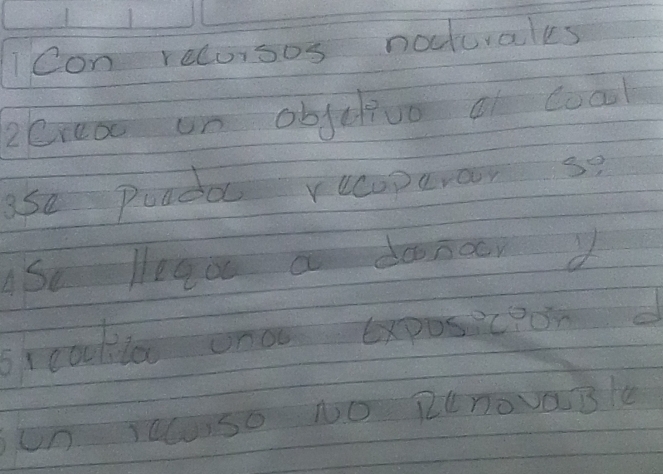 1 Con recursos naturales
2 Crea un objetivo al coal
3 Se Pueda recuperar si
4 Se llega a dañar y
5 realiza una exposición d
un recurso NO Renovable